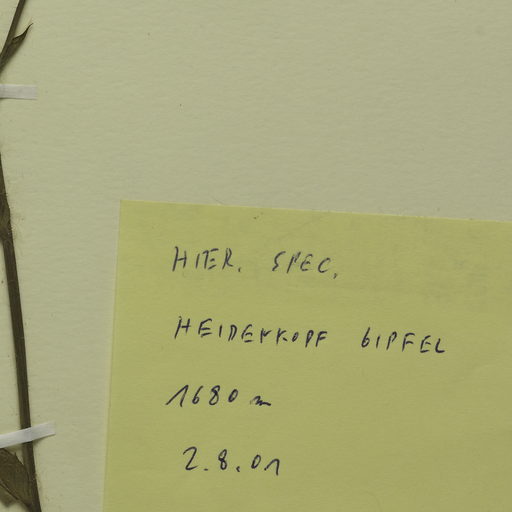 HIER. SPEC.
HEIDERKOPF GIPFEL
1680 m
2.8.01